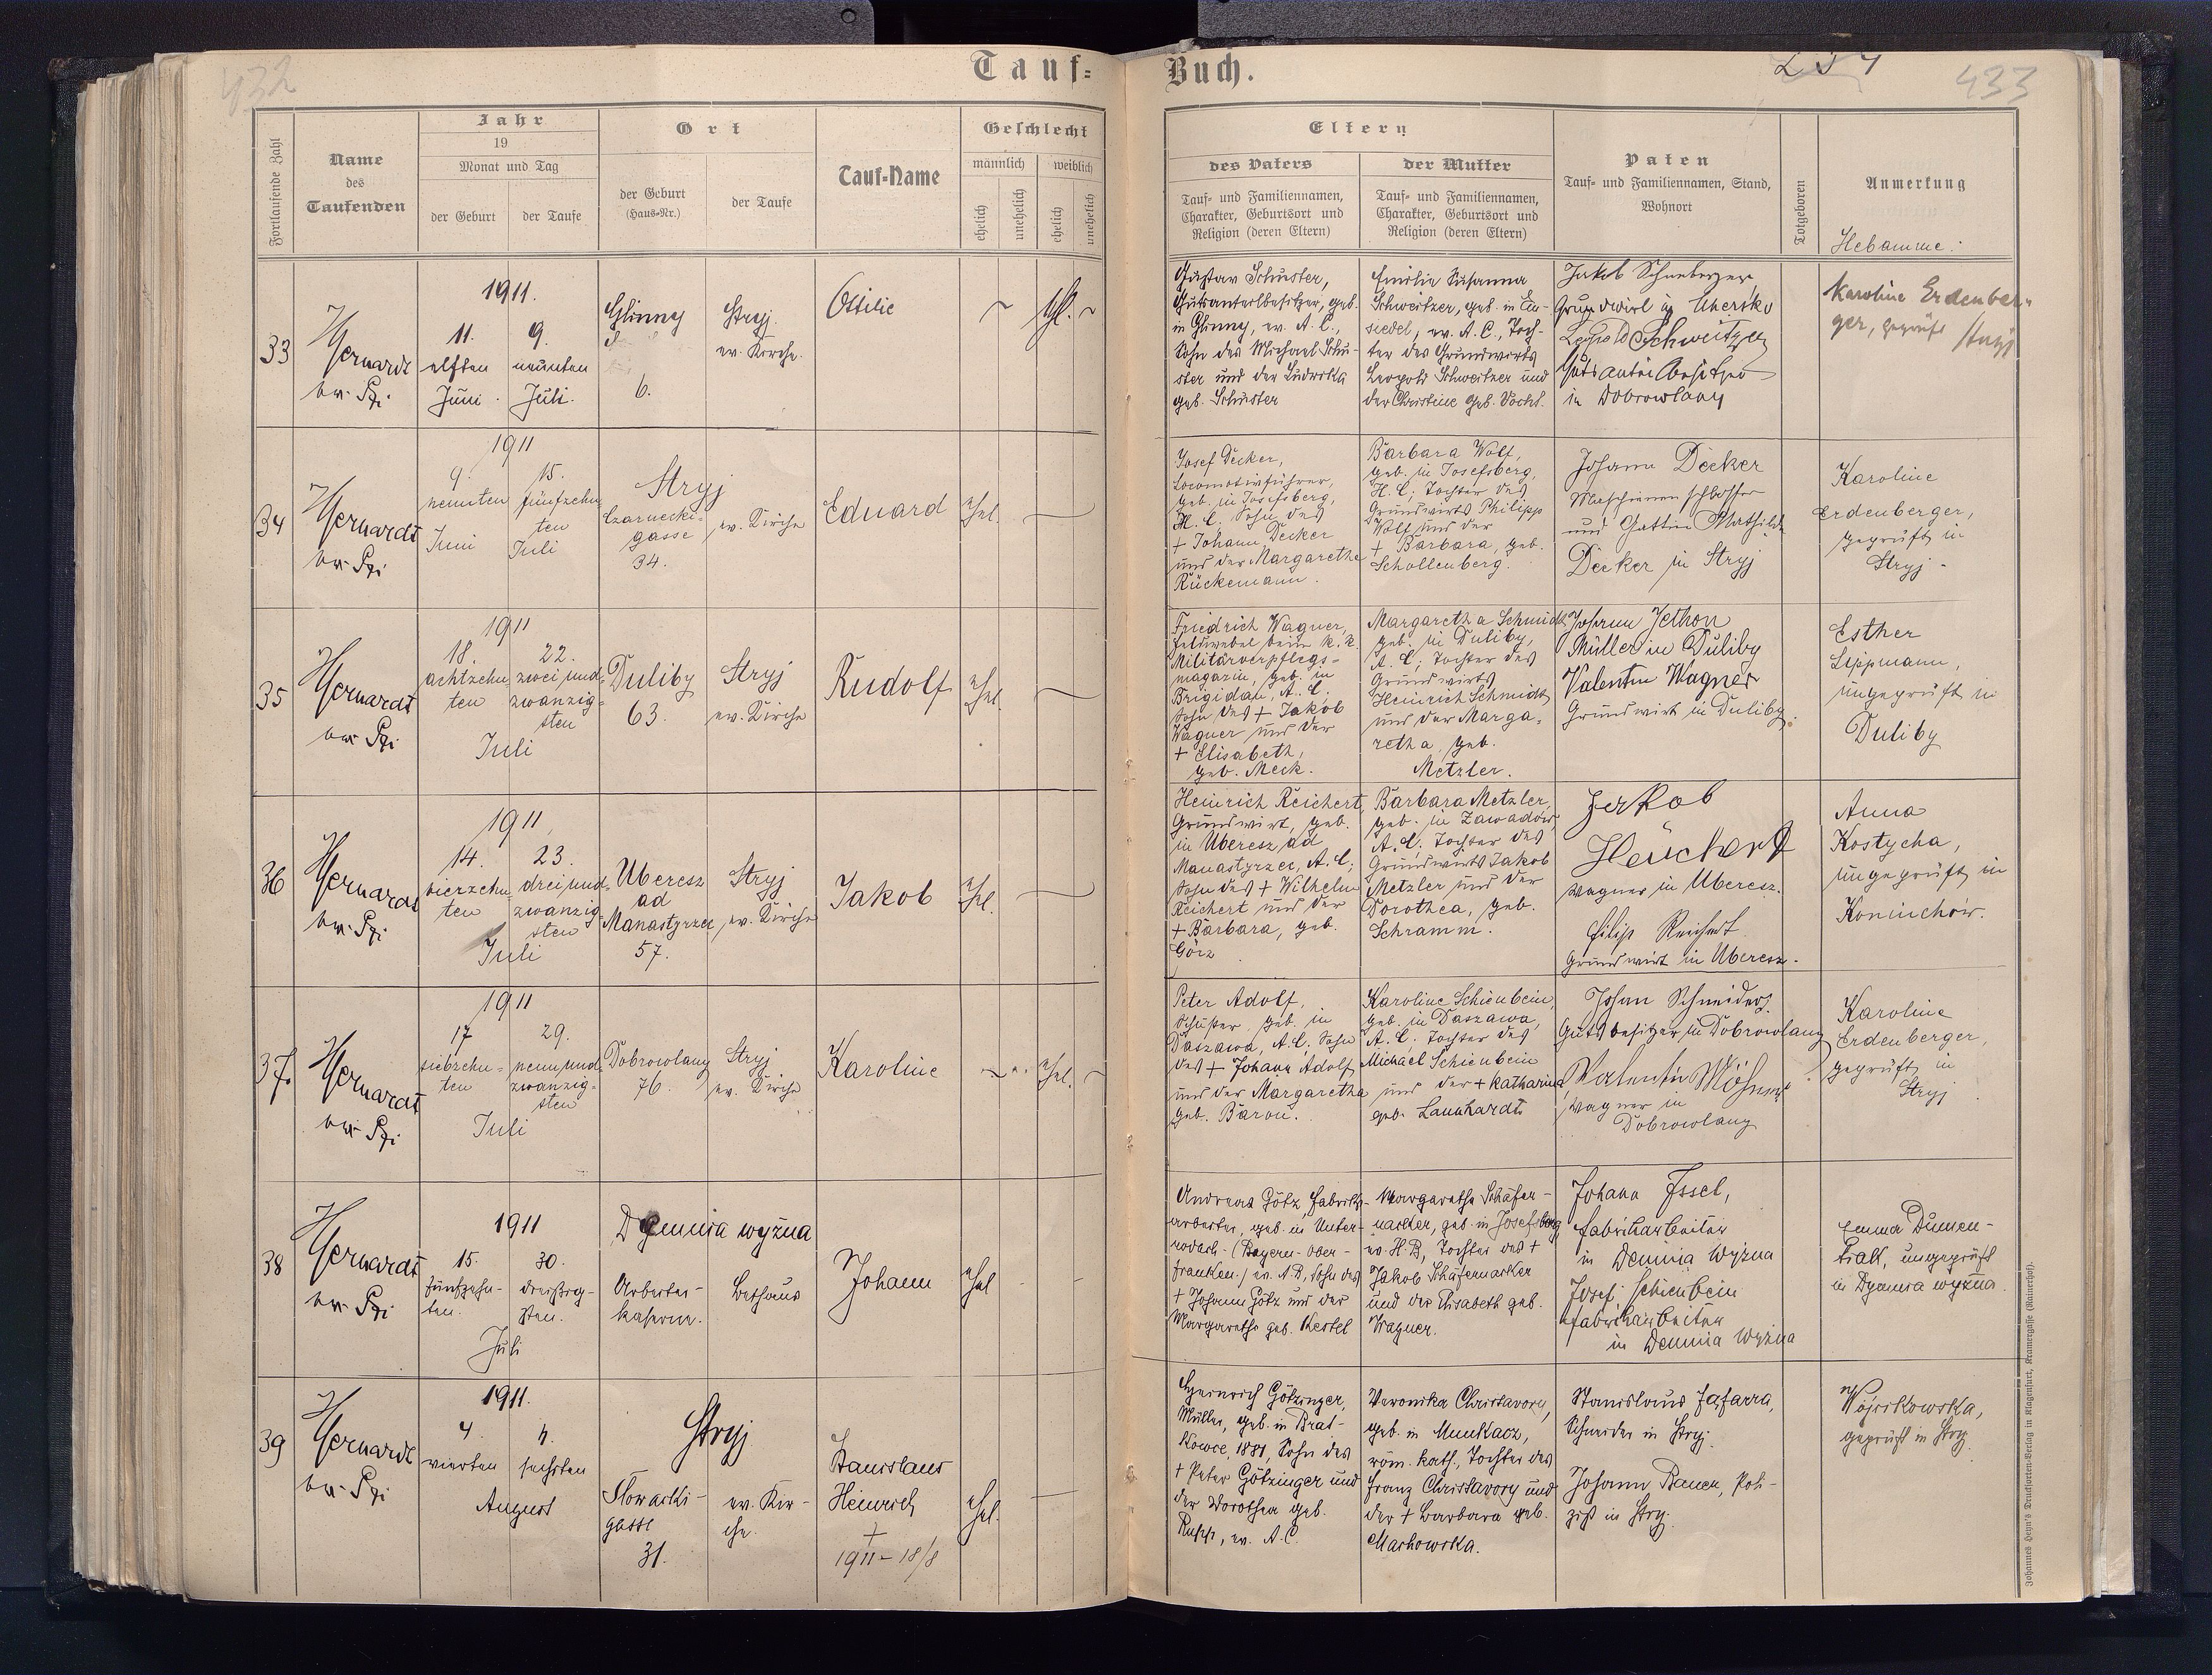 432
Tauf=
Buch.
433
Fortlaufende Zahl
Name
des
Taufenden
Jahr
19
Monat und Tag
der Geburt
der Taufe
Ort
der Geburt
(Haus-Nr.)
der Taufe
Tauf=Name
Geschlecht
männlich
weiblich
ehelich
unehelich
ehelich
unehelich
Eltern
des Vaters
Tauf= und Familiennamen,
Charakter, Geburtsort und
Religion (deren Eltern)
der Mutter
Tauf= und Familiennamen,
Charakter, Geburtsort und
Religion (deren Eltern)
Paten
Tauf= und Familiennamen, Stand,
Wohnort
Totgeboren
Anmerkung
Hebamme:
33
1911.
11.
elften
Juni
9.
neunten
Juli.
Glinny
6.
Stryj.
ev. Kirche.
Ottilie
Gustav Schuster,
Gutsanteilbesitzer, geb.
in Glinny, ev. A. C.,
Sohn des Michael Schu-
ster und der Ludwika
geb. Schuster
Emilie Susanna
Schweitzer, geb. in Ein-
siedel, ev. A. C., Toch-
ter des Grundwirts
Leopold Schweitzer und
der Christine geb.
Jakob Schneberger
Grundwirt in Uhersko
Leopold Schweitzer
in Dobrowlany
Karoline Erdenber-
ger, geprüft Stryj
34
1911
9.
neunten
Juni
15.
fünfzehn-
ten
Juli
Stryj
Czarnecki-
gasse
34.
ev. Kirche
Eduard
ehel.
Josef Decker,
Locomotivführer,
geb. in Josefsberg,
H. C. Sohn des
+ Johann Decker
und der Margarethe
Rückemann.
Barbara Wolf,
geb. in Josefsberg,
H. C; Tochter des
Grundwirts Philipp
Wolf und der
+ Barbara, geb.
Schollenberg.
Johann Decker
Maschinenschlosser
und Gattin Mathilde
Decker in Stryj
Karoline
Erdenberger,
geprüft in
Stryj.
35
1911
18.
achtzehn-
ten
22.
zwei und=
zwanzig=
sten
Juli
Duliby
63.
Stryj
ev. Kirche
Rudolf
ehel.
Friedrich Wagner,
Feldwebel beim k. k.
Militärverpflegs-
magazin, geb. in
Brigidau, A. C.
Sohn des + Jakob
Wagner und der
+ Elisabeth,
geb. Meck.
Margaretha Schmidt
geb. in Duliby,
A. C; Tochter des
Grundwirts
Heinrich Schmidt
und der Marga-
retha, geb.
Metzler.
Johann Jethon
Müller in Duliby
Valentin Wagner
Grundwirt in Duliby.
Esther
Lippmann,
ungeprüft in
Duliby
36
1911
14.
vierzehn-
ten
23.
drei und=
zwanzig-
sten
Juli
Uberesz
ad
Manastyrzec
57.
Stryj
ev. Kirche
Jakob
ehel.
Heinrich Reichert,
Grundwirt, geb.
in Uberesz ad
Manastyrzec, A. C;
Sohn des + Wilhelm
Reichert und der
+ Barbara, geb.
Görz
Barbara Metzler,
geb. in Zawadow,
A. C; Tochter des
Grundwirts Jakob
Metzler und der
Dorothea, geb.
Schramm.
Jakob
Heuchert
Wagner in Uberesz.
Filip Reichert
Grundwirt in Uberesz.
Anna
Kostycha,
ungeprüft in
Koniuchów.
37.
1911
17
siebzehn-
ten
29.
neun und=
zwanzig-
sten
Juli
Dobrowlany
76.
Stryj
ev. Kirche
Karoline
ehel.
Peter Adolf,
geb. in
Daszawa, A. C. Sohn
des + Johann Adolf
und der Margaretha
geb. Baron.
Karoline Schienbein,
geb. in Daszawa,
A. C. Tochter des
Michael Schienbein
und der + Katharina
geb. Launhardt
Johan Schneider,
Gutsbesitzer in Dobrowlany
Valentin
Wagner in
Dobrowlany
Karoline
Erdenberger,
geprüft in
Stryj
38
1911
15.
fünfzehn-
ten.
30.
dreißig-
sten.
Juli
Demnia wyżna
Arbeiter-
kaserne.
Bethaus
Johann
ehel
Andreas Götz, Fabriks-
arbeiter, geb. in Unter-
rodach (Bayern-Ober-
franken) ev. A. B, Sohn des
+ Johann Götz und der
Margarethe geb. Kestel
Margarethe Schäfer-
nacker, geb. in Josefsberg,
ev. H. B, Tochter des +
Jakob Schäfernacker
und der Elisabeth geb.
Wagner.
Johann Issel,
Fabrikarbeiter
in Demnia Wyżna
Josef Schienbein
Fabrikarbeiter
in Demnia Wyżna
ungeprüft
in Demnia wyżna.
39
1911.
4.
vierten
6.
sechsten
August
Stryj
Słowacki-
gasse
31.
ev. Kir-
che.
Stanislaus
Heinrich
+
1911 - 18/8
ehel.
Heinrich Götzinger,
Müller, geb. in Brat-
kowce, 1881, Sohn des
+ Peter Götzinger und
der Dorothea geb.
Rupp, ev. A. C.
Veronika Christavory,
geb. in Munkacz,
röm. kath., Tochter des
Franz Christavory und
der + Barbara geb.
Markowska.
Stanislaus Fafarra,
Schneider in Stryj.
Johann Bauer, Poli-
zist in Stryj.
Wójcikowska,
geprüft in Stryj
Johannes Heyn's Drucksorten-Verlag in Klagenfurt, Kramergasse (Rainerhof).